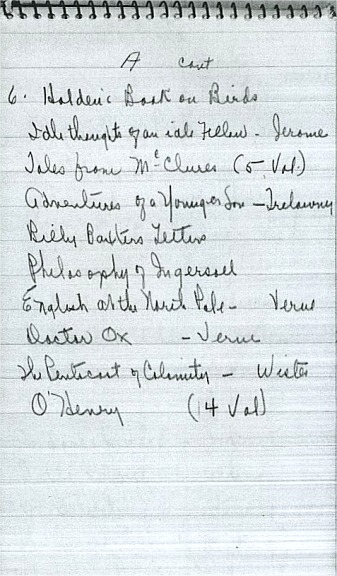 A cont
6. Holden's Book on Birds
Idle thoughts of an idle Fellow - Jerome
Tales from McClures (5 Vol.)
Adventures of a Younger Son - Trelawny
Billy Baxters Letters
Philosophy of Ingersoll
English at the North Pole - Verne
Doctor Ox - Verne
The Pentecost of Calamity - Wister
O'Henry (14 Vol)